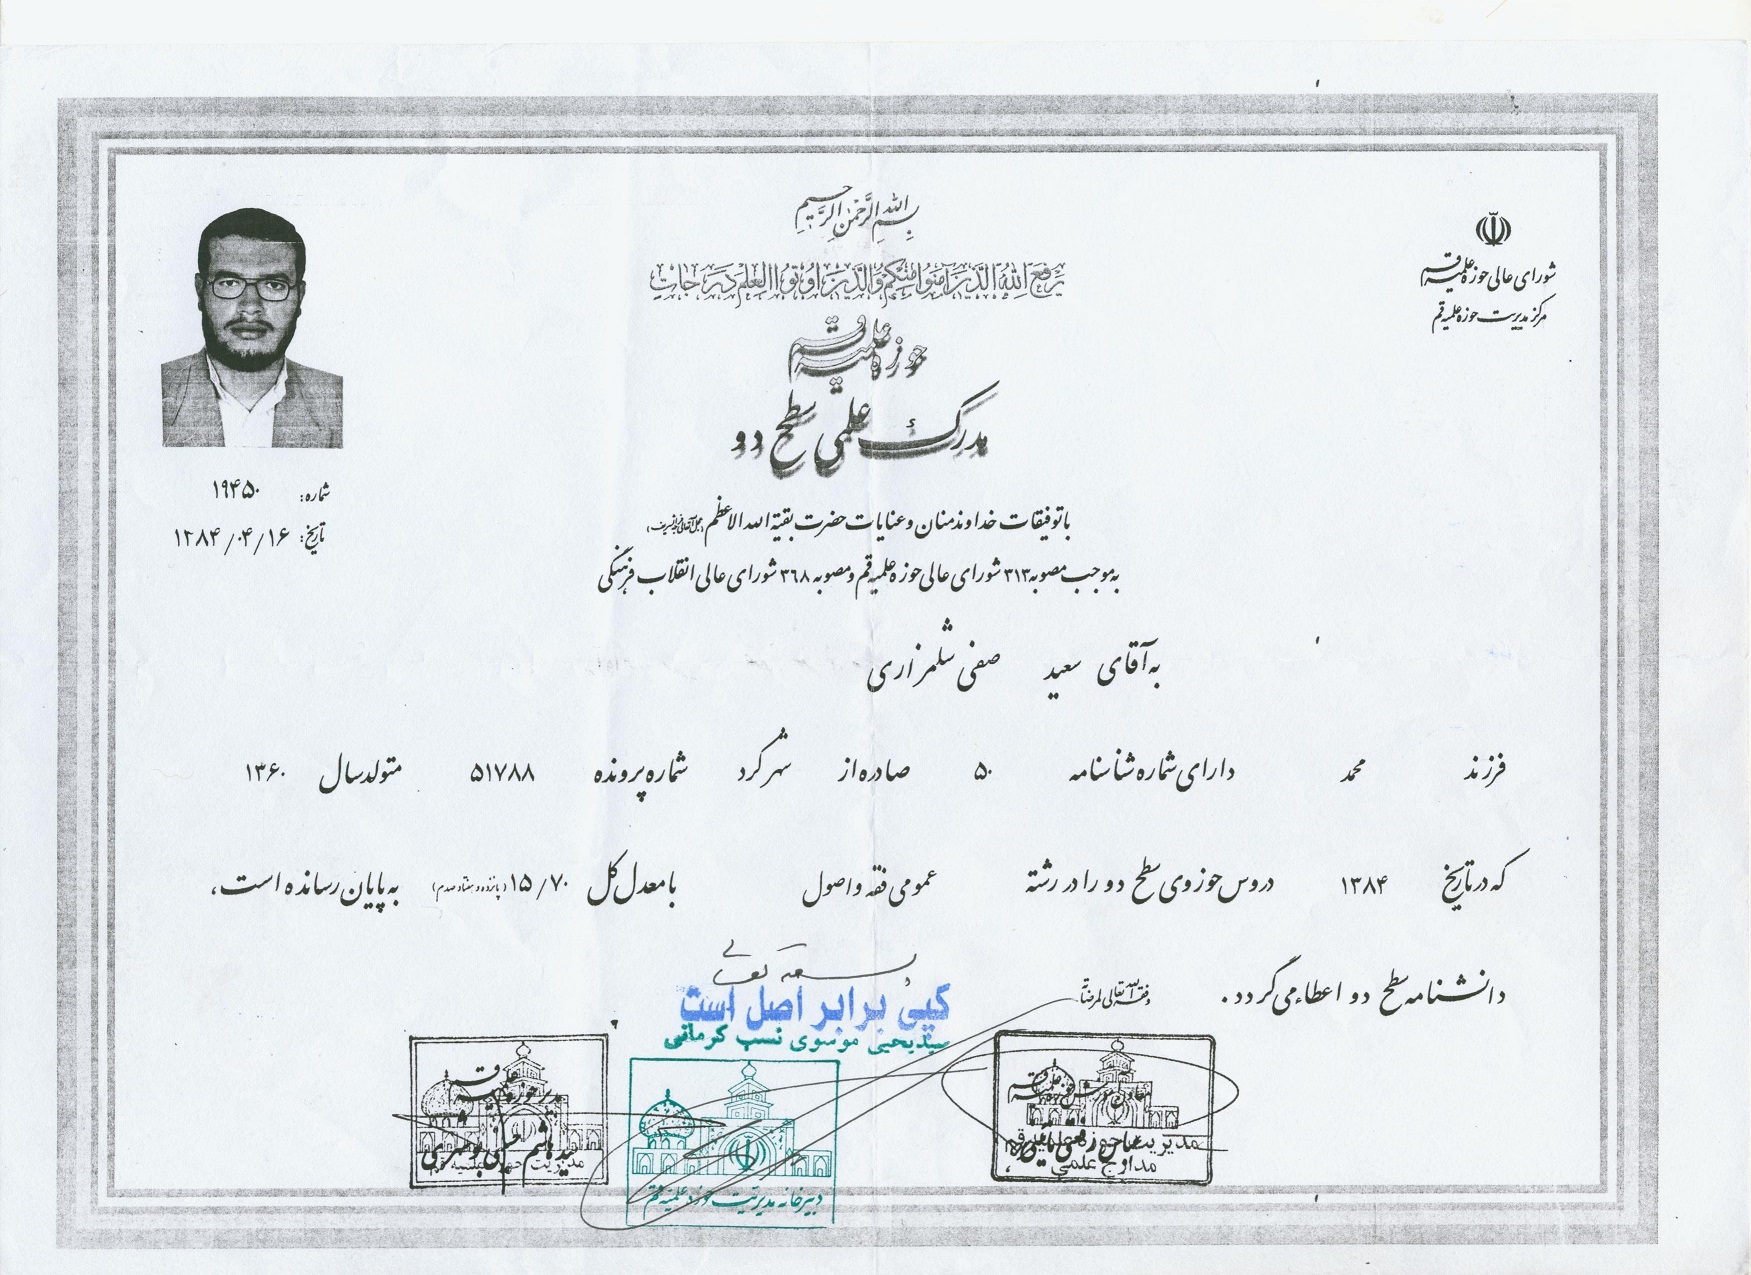 بسم الله الرحمن الرحیم
یرفع الله الذین آمنوا منکم والذین اوتوا العلم درجات
شورای عالی حوزه علمیه قم
مرکز مدیریت حوزه علمیه قم
حوزه علمیه قم
مدرک علمی سطح دو
شماره: ۱۹۴۵۰
تاریخ: ۱۳۸۴/۰۴/۱۶
با توفیقات خداوند منان و عنایات حضرت بقیة الله الاعظم (عجل الله تعالی فرجه الشریف)
به موجب مصوبه ۳۱۳ شورای عالی حوزه علمیه قم و مصوبه ۳۶۸ شورای عالی انقلاب فرهنگی
به آقای سعید صفی شلمزاری
فرزند محمد دارای شماره شناسنامه ۵۰ صادره از شهرکرد شماره پرونده ۵۱۷۸۸ متولد سال ۱۳۶۰
که در تاریخ ۱۳۸۴ دروس حوزوی سطح دو را در رشته عمومی فقه و اصول با معدل کل ۱۵/۷۰ (پانزده و هفتاد صدم) به پایان رسانده است،
دانشنامه سطح دو اعطاء می گردد. وفقه الله تعالی لمرضاته
بسمه تعالی
کپی برابر اصل است
سیدیحیی موسوی نسب کرمانی
مدیر حوزه علمیه قم
سید هاشم حسینی بوشهری
دبیرخانه مدیریت حوزه علمیه قم
معاون آموزش حوزه علمیه قم
مدیریت حوزه علمیه قم
مدارج علمی